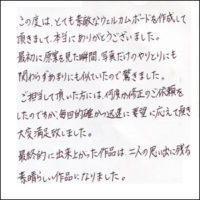 この度は、とても素敵なウェルカムボードを作成して
頂きまして、本当にありがとうございました。
最初に原案を見た瞬間、写真だけのやりとりにも
関わらずあまりにも似ていたので驚きました。
ご担当して頂いた方には、何度か修正のご依頼を
したのですが、毎回的確かつ迅速に要望に応えて頂き
大変満足致しました。
最終的に出来上かった作品は 二人の思い出に残る
素晴らしい作品になりました。